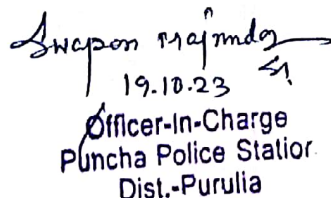 Swapon Majumdar
SI
19.10.23
Officer-In-Charge
Puncha Police Station
Dist.-Purulia